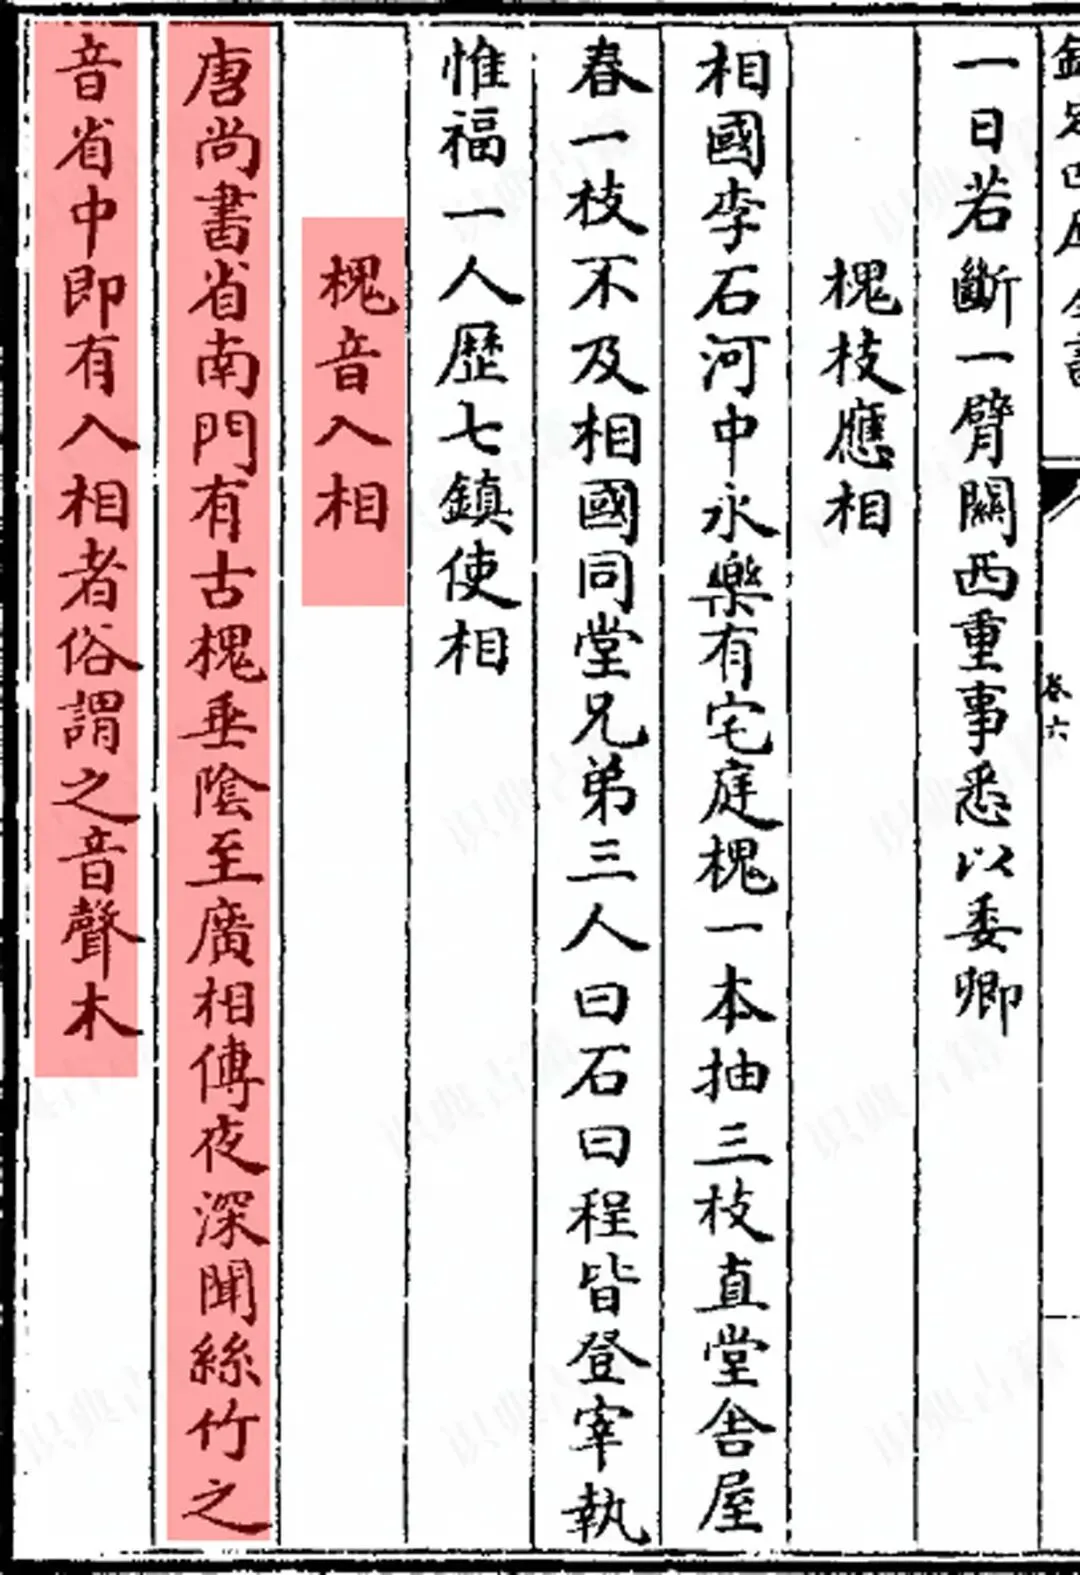 欽定四庫全書
卷六
一日若斷一臂關西重事悉以委卿
槐枝應相
相國李石河中永樂有宅庭槐一本抽三枝直堂舍屋
春一枝不及相國同堂兄弟三人曰石曰程皆登宰執
惟福一人歷七鎮使相
槐音入相
唐尚書省南門有古槐垂陰至廣相傳夜深聞絲竹之
音省中即有入相者俗謂之音聲木